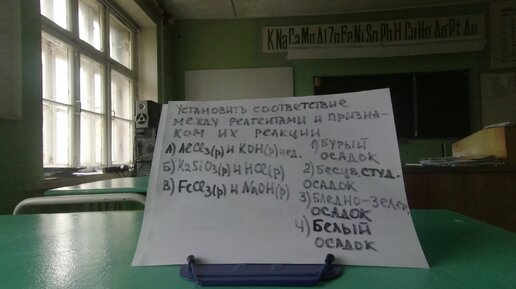 K Na Ca Mg Al Zn Fe Ni Sn Pb H Cu Hg Ag Pt Au
УСТАНОВИТЬ СООТВЕТСТВИЕ
МЕЖДУ РЕАГЕНТАМИ И ПРИЗНА-
КОМ ИХ РЕАКЦИИ
А) AlCl3(р) и KOH(р) нед.
Б) K2SiO3(р) и HCl(р)
В) FeCl3(р) и NaOH(р)
1) БУРЫЙ
ОСАДОК
2) БЕСЦВ СТУД.
ОСАДОК
3) БЛЕДНО-ЗЕЛЕН.
ОСАДОК
4) БЕЛЫЙ
ОСАДОК